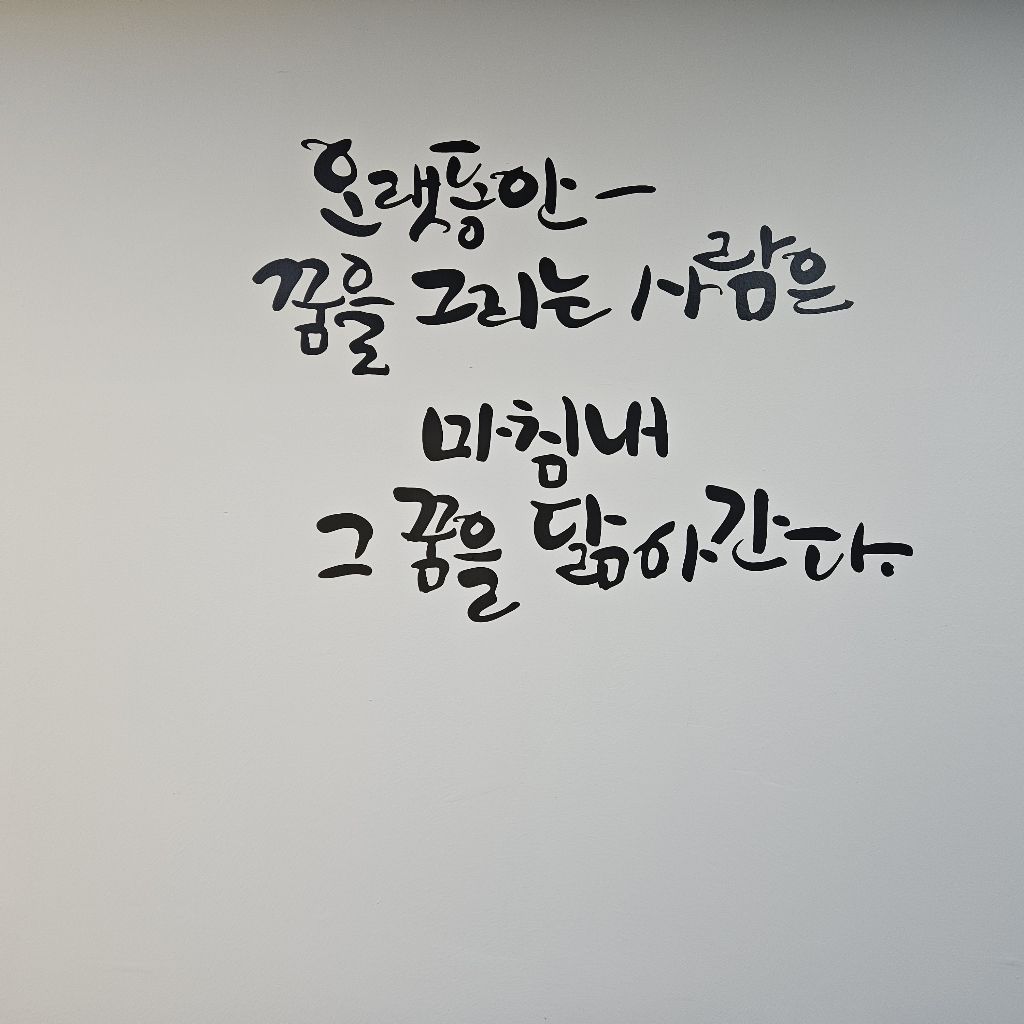 오랫동안 -
꿈을 그리는 사람은
마침내
그 꿈을 닮아간다.